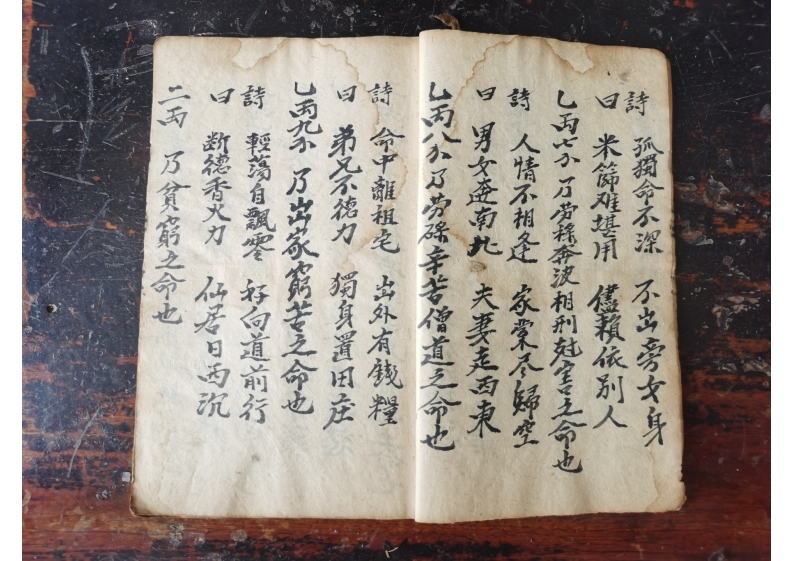 詩 孤獨命不深 不出旁女身
曰 米篩难堪用 儘賴依別人
乙丙七分乃劳碌奔波相刑尅害之命也
詩 人情不相逢 家業尽歸空
曰 男女逰南北 夫妻走西東
乙丙八分乃劳碌辛苦僧道之命也
詩 命中離祖宅 出外有錢糧
曰 弟兄不德力 獨身置田庄
乙丙九分乃出家窮苦之命也
詩 輕荡自飄零 好向道前行
曰 断德香火力 仙居日西沉
二丙 乃貧窮之命也